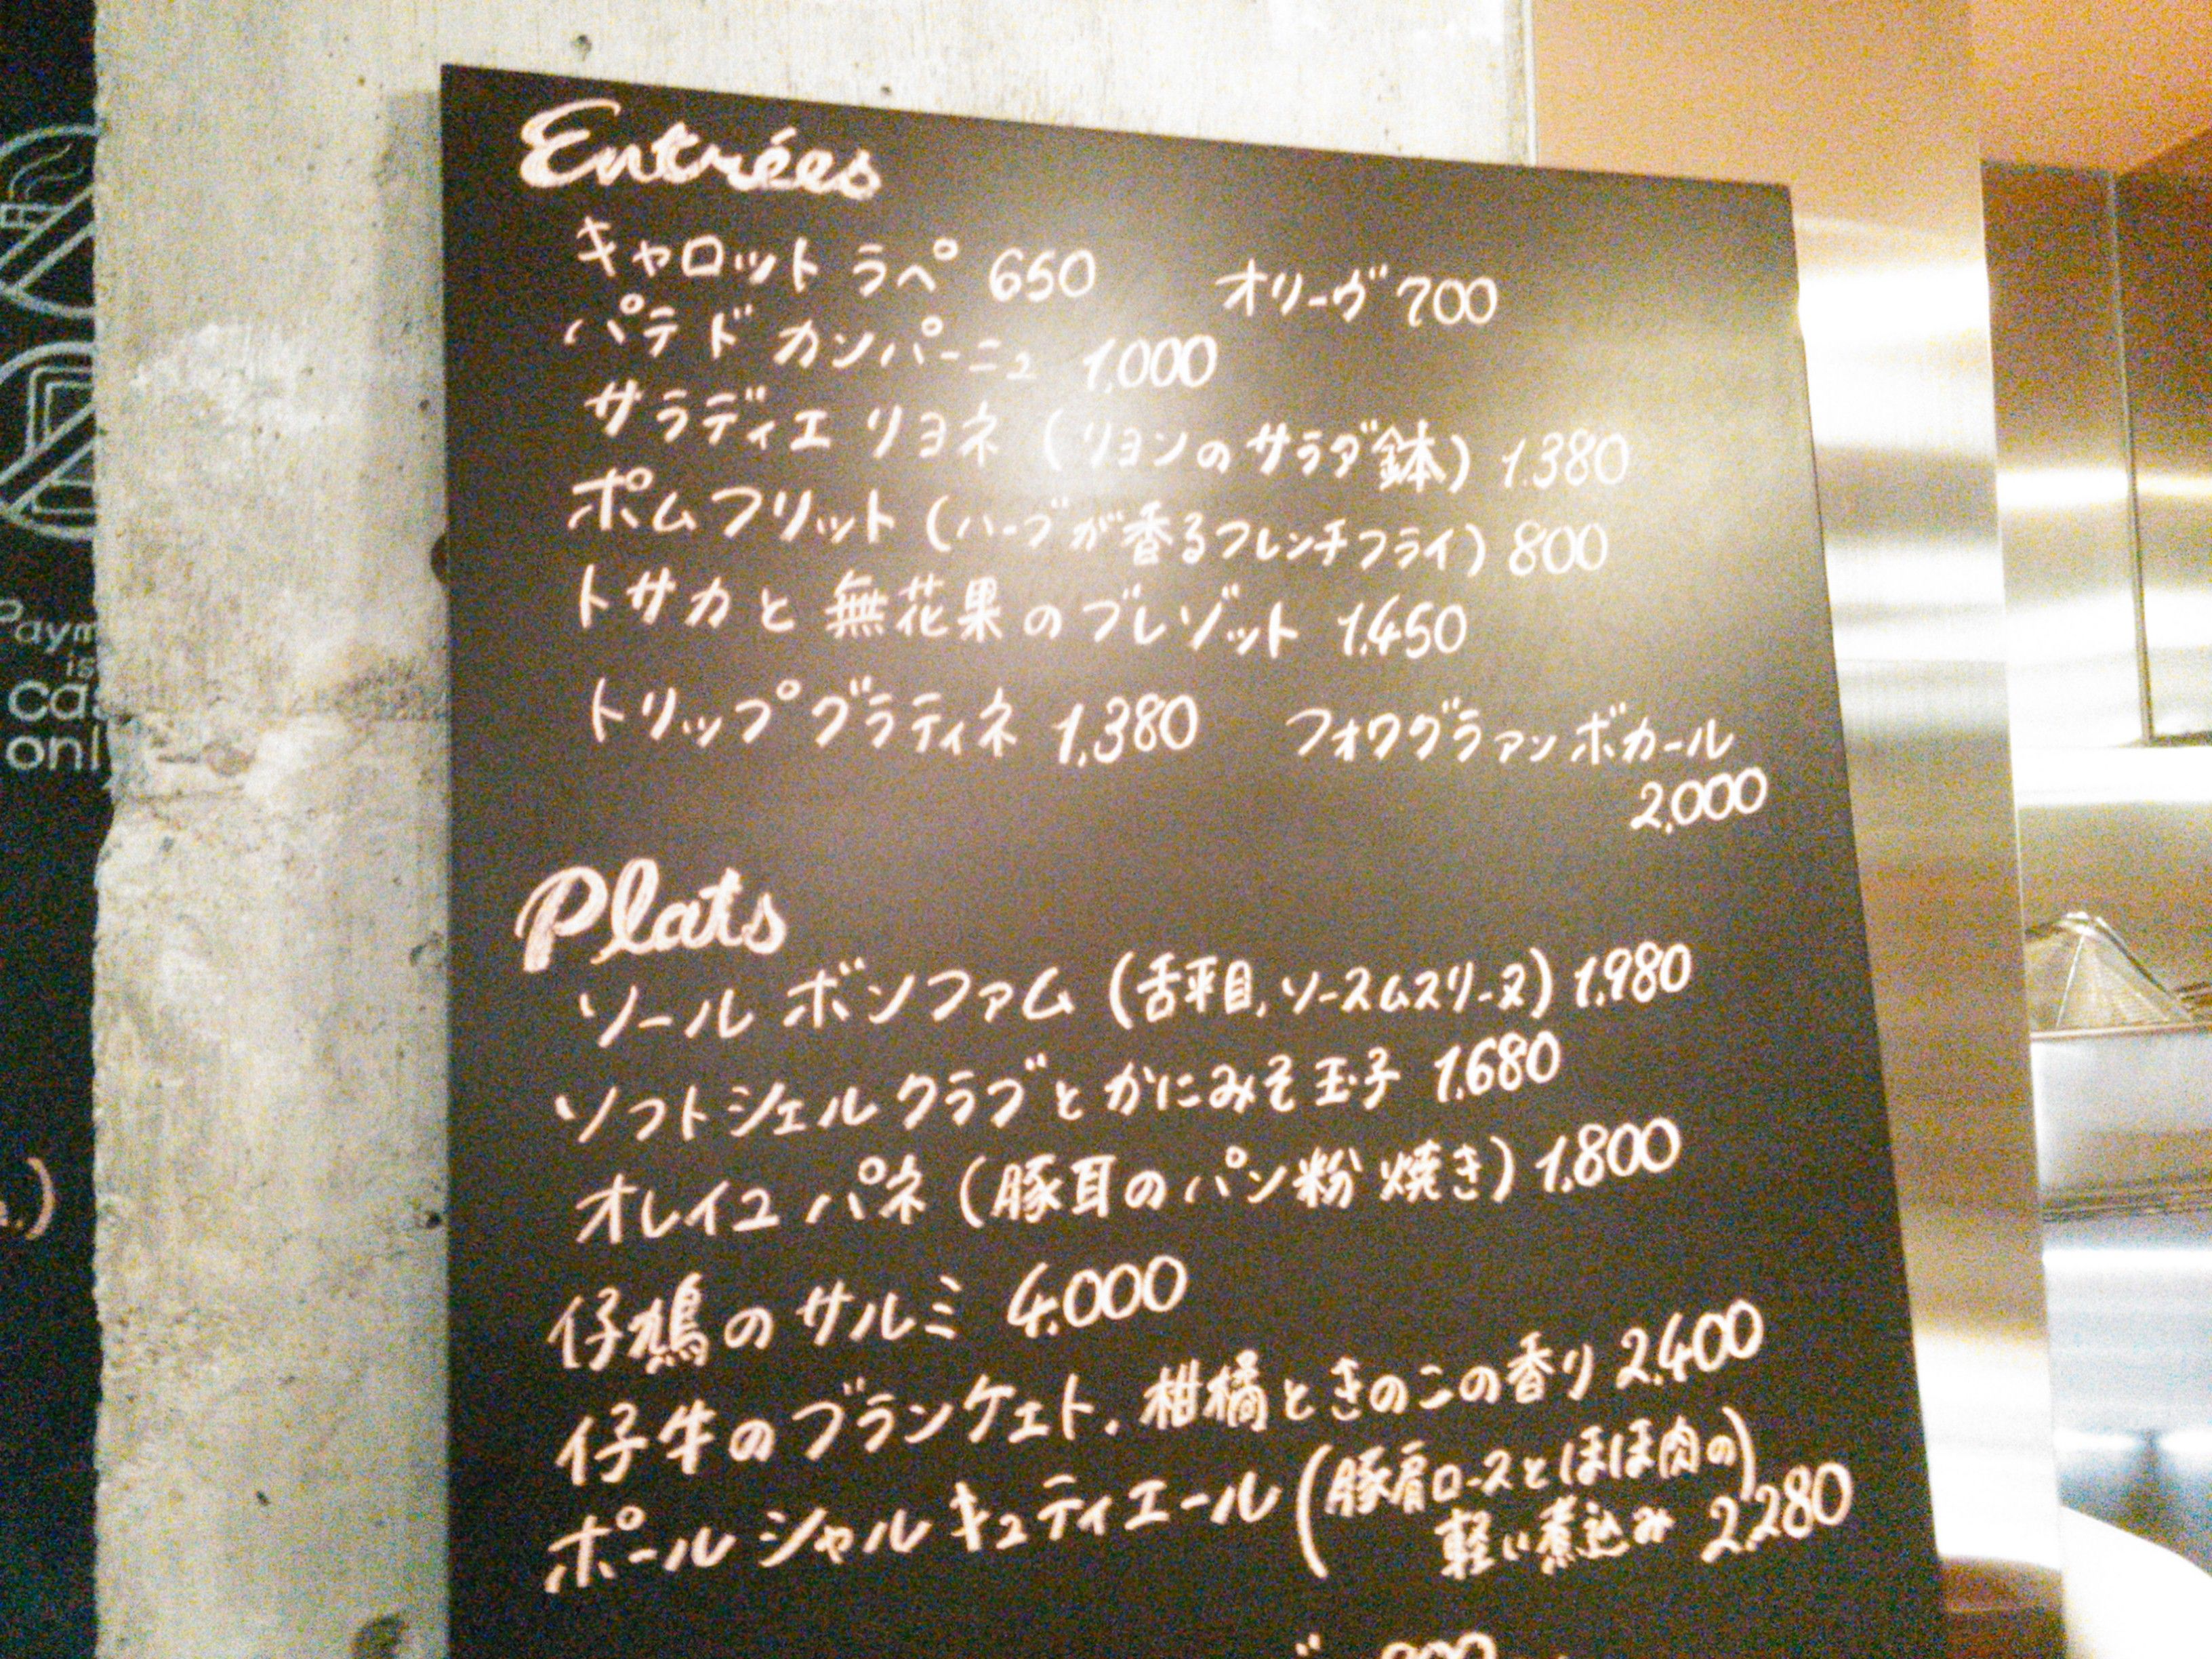 Entrées
キャロット ラペ 650 オリーヴ 700
パテ ド カンパーニュ 1,000
サラディエ リヨネ (リヨンのサラダ鉢) 1.380
ポムフリット (ハーブが香るフレンチフライ) 800
トサカと無花果のブレゾット 1,450
トリップグラティネ 1,380 フォワグラ アン ボカール
2,000
Plats
ソール ボンファム (舌平目, ソースムスリーヌ) 1,980
ソフトシェルクラブとかにみそ玉子 1,680
オレイユ パネ (豚耳のパン粉焼き) 1,800
仔鳩のサルミ 4,000
仔牛のブランケェト, 柑橘ときのこの香り 2,400
ポール シャルキュティエール (豚肩ロースとほほ肉の
軽い煮込み) 2,280
Paym
is
ca
onl